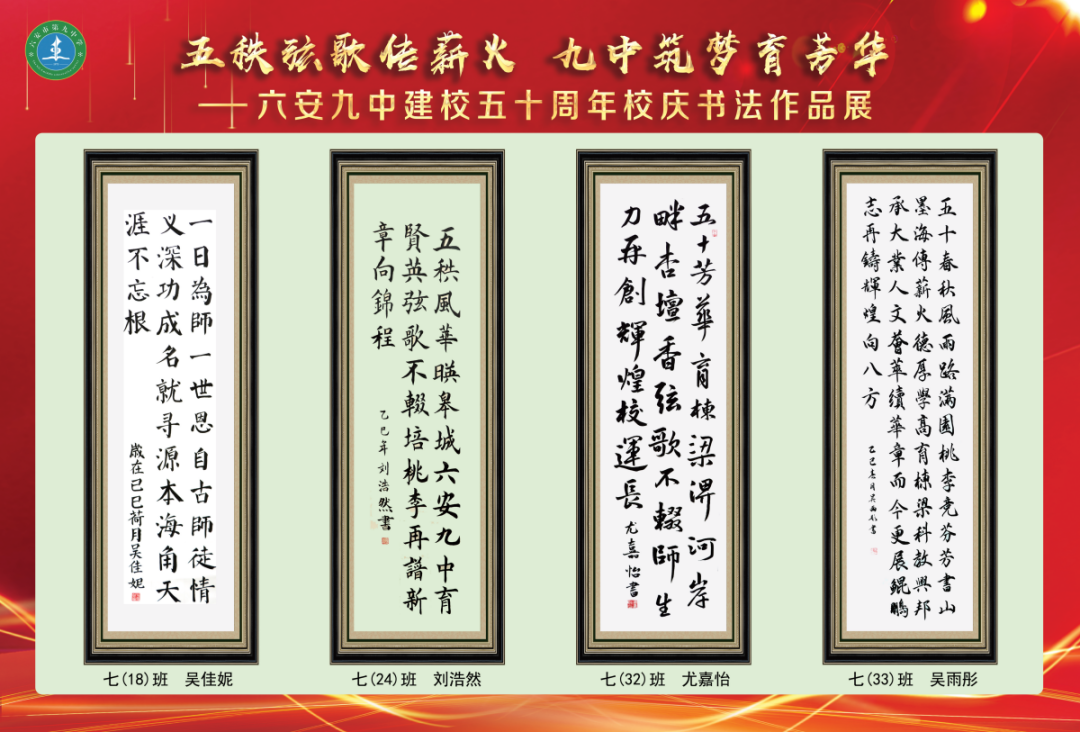 六安市第九中学
五秩弦歌传薪火 九中筑梦育芳华
——六安九中建校五十周年校庆书法作品展
一日為師一世恩自古師徒情
义深功成名就寻源本海角天
涯不忘根
歲在己巳荷月吴佳妮
七(18)班 吴佳妮
五秩風華暎皋城六安九中育
賢英弦歌不輟培桃李再譜新
章向錦程
乙巳年刘浩然書
七(24)班 刘浩然
五十芳華育棟梁淠河岸
畔杏壇香弦歌不輟師生
力再創輝煌校運長
尤嘉怡書
七(32)班 尤嘉怡
五十春秋風雨路滿園桃李竞芬芳書山
墨海傳薪火德厚學高育棟梁科教興邦
承大業人文薈萃續華章而今更展鯤鵬
志再鑄輝煌向八方
乙巳春月吴雨彤書
七(33)班 吴雨彤